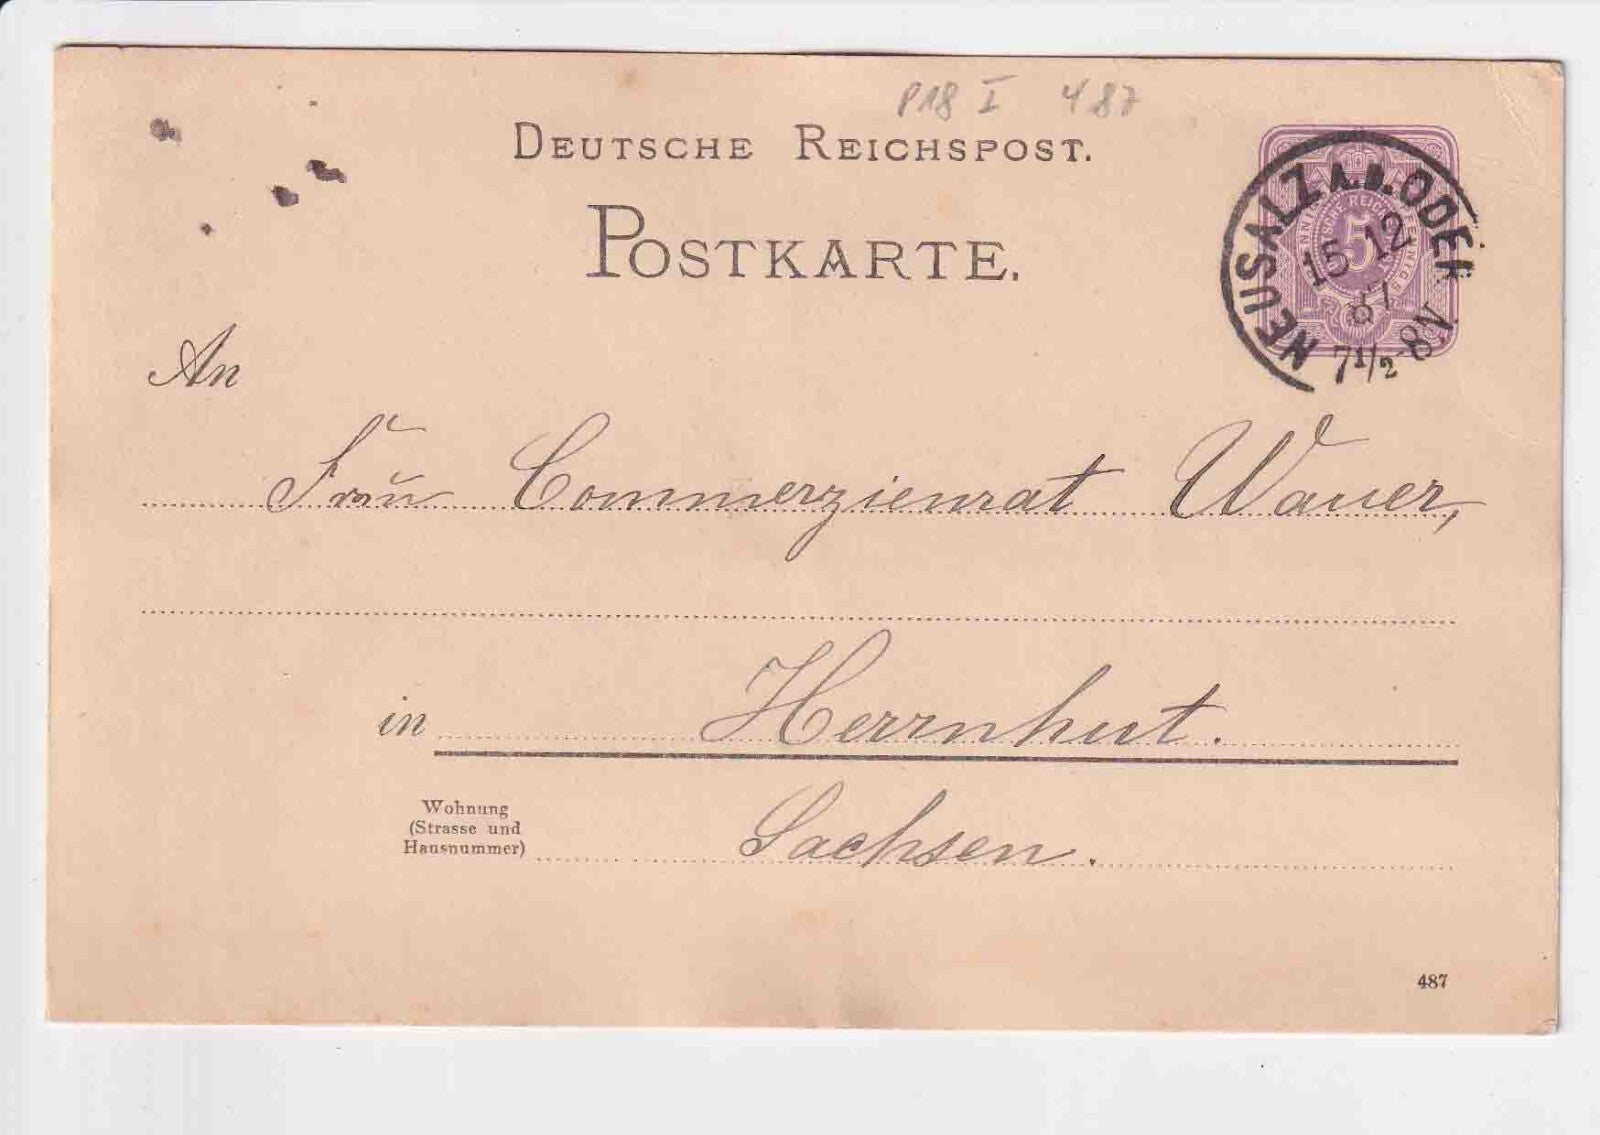 P18 I 487
DEUTSCHE REICHSPOST.
POSTKARTE.
NEUSALZ A.D. ODER
15 12
87
7 1/2-8N.
5
An
Frau Commerzienrat Wauer,
in Herrnhut.
Wohnung
(Strasse und
Hausnummer)
Sachsen.
487